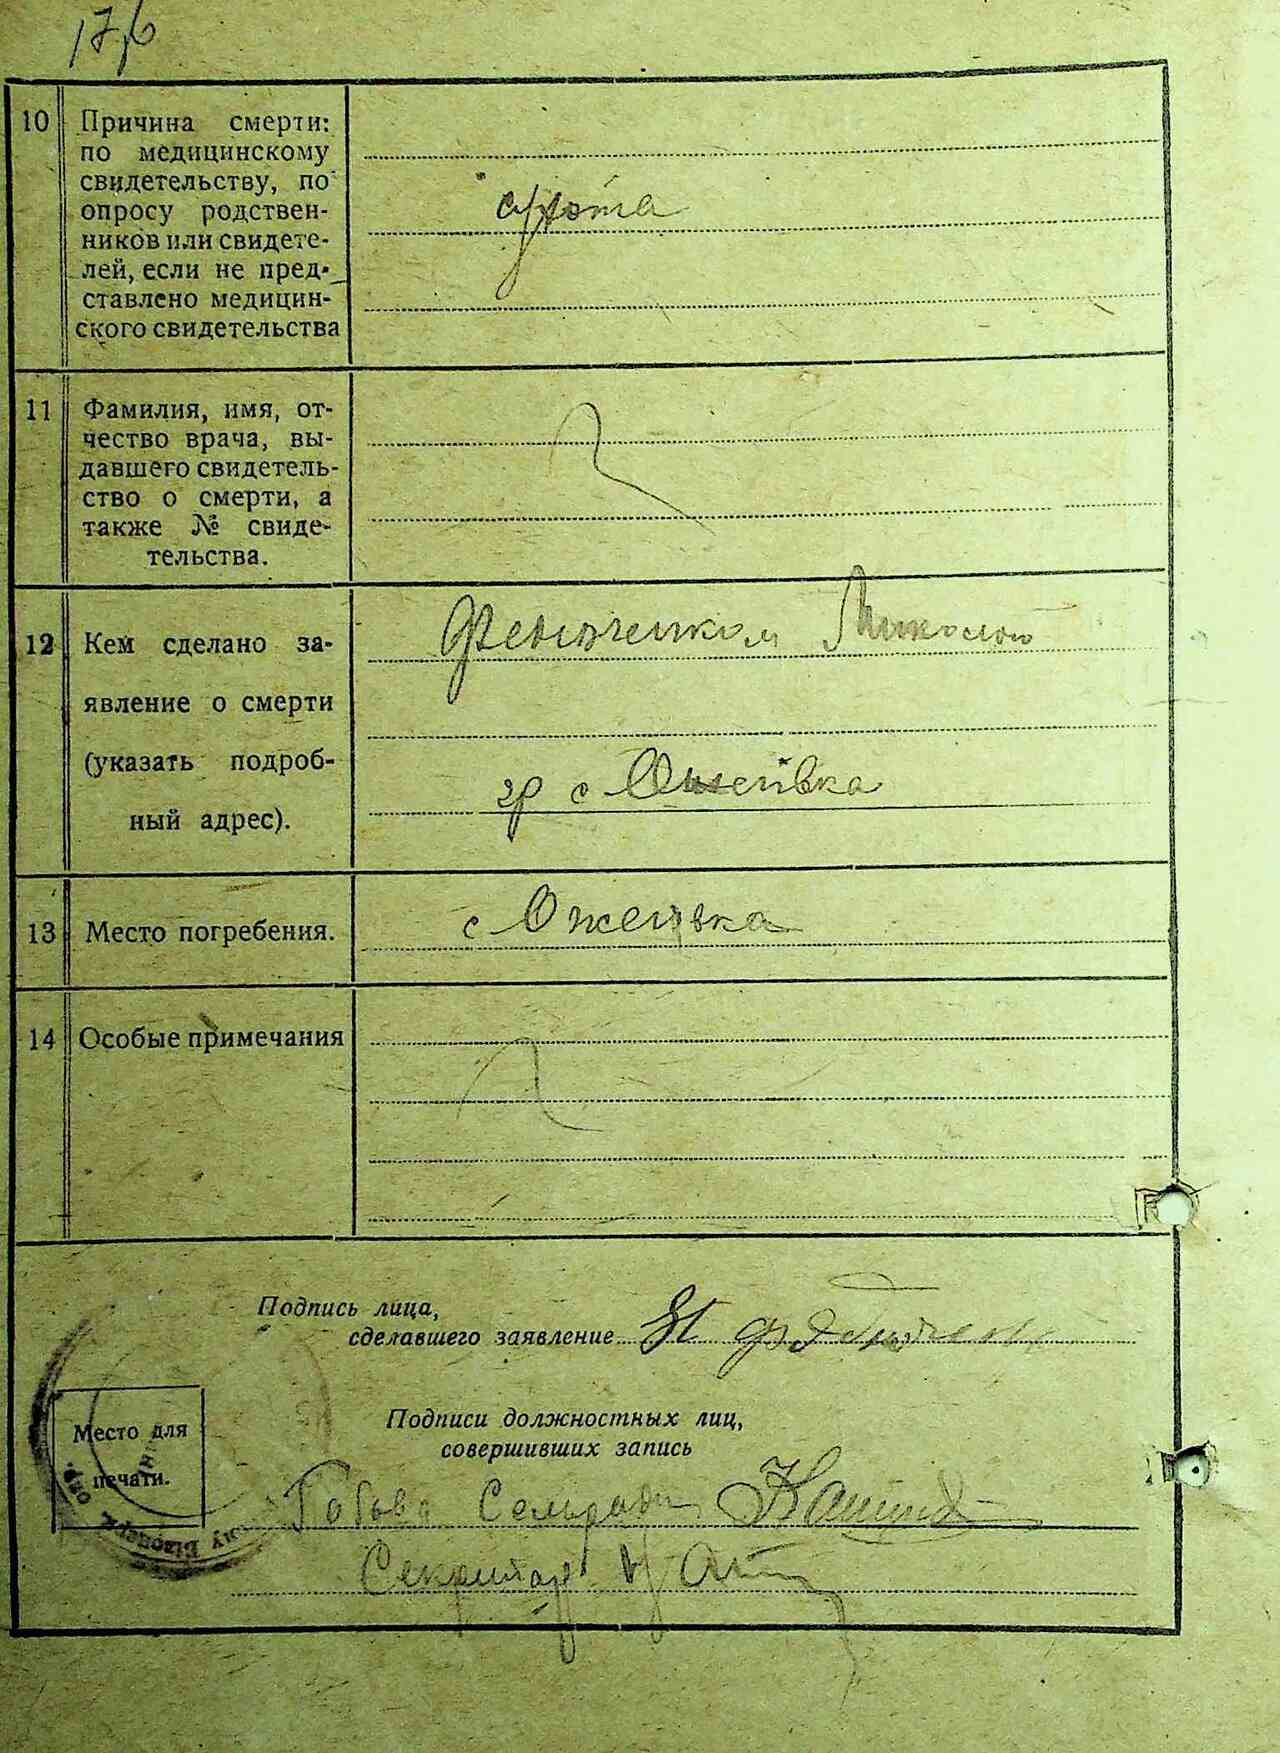 17б
10
Причина смерти:
по медицинскому
свидетельству, по
опросу родствен-
ников или свидете-
лей, если не пред-
ставлено медицин-
ского свидетельства
сухота
11
Фамилия, имя, от-
чество врача, вы-
давшего свидетель-
ство о смерти, а
также № свиде-
тельства.
12
Кем сделано за-
явление о смерти
(указать подроб-
ный адрес).
Миколою
гр с Ожеївка
13
Место погребения.
с Ожеївка
14
Особые примечания
Подпись лица,
сделавшего заявление
Подписи должностных лиц,
совершивших запись
Место для
печати.
Голова Сельради
Секритар